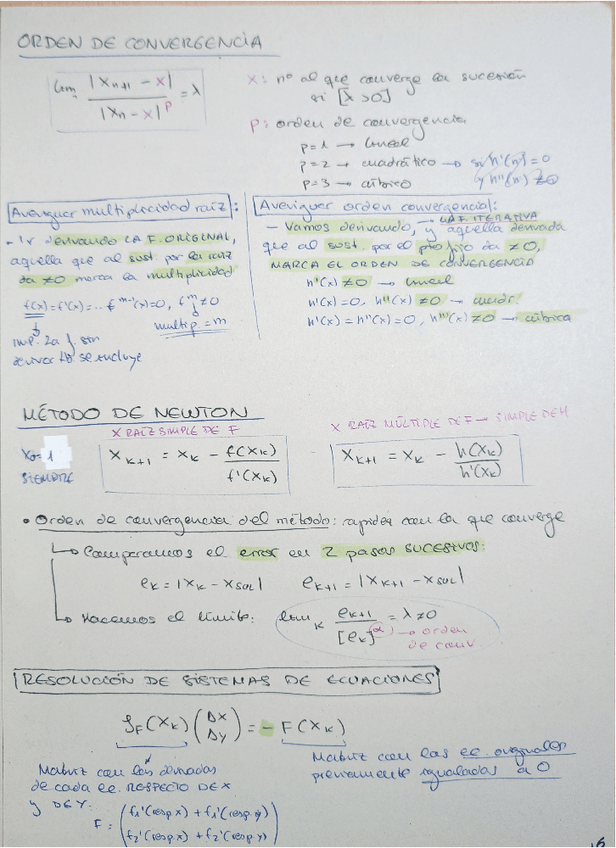 ORDEN DE CONVERGENCIA
lim |Xn+1 - x| / |Xn - x|^p = λ
x: nº al que converge la sucesión
si [λ>0]
p: orden de convergencia
p=1 → lineal
p=2 → cuadrático → si h'(n)=0
y h''(n) ≠0
p=3 → cúbico
Averiguar multiplicidad raíz:
- Ir derivando LA F. ORIGINAL,
aquella que al sust. por la raíz
da ≠0 marca la multiplicidad
f(x)=f'(x)=...f^m-1(x)=0, f^m ≠0
multip.=m
imp. la f sin
derivar tb se incluye
Averiguar orden convergencial:
- Vamos derivando, → LA F. ITERATIVA y aquella derivada
que al sust. por el pto fijo da ≠0,
MARCA EL ORDEN DE CONVERGENCIA
h'(x) ≠0 → lineal
h'(x)=0, h''(x) ≠0 → cuadr.
h'(x)=h''(x)=0, h'''(x) ≠0 → cúbica
MÉTODO DE NEWTON
X0=1
SIEMPRE
X RAÍZ SIMPLE DE F
X k+1 = Xk - f(Xk) / f'(Xk)
X RAÍZ MÚLTIPLE DE F → SIMPLE DE H
X k+1 = Xk - h(Xk) / h'(Xk)
• Orden de convergencia del método: rapidez con la que converge
↳ Comparamos el error en 2 pasos SUCESIVOS:
ek = |Xk - Xsol| ek+1 = |Xk+1 - Xsol|
↳ Hacemos el límite: lim k ek+1 / [ek]^α = λ ≠0
→ orden
de conv.
RESOLUCIÓN DE SISTEMAS DE ECUACIONES
JF(Xk) (Δx Δy) = - F(Xk)
Matriz con las derivadas
de cada ec. RESPECTO DE X
y DE Y.
F: (f1'(resp x) + f1'(resp y)
f2'(resp x) + f2'(resp y))
Matriz con las ec. originales
previamente igualadas a 0